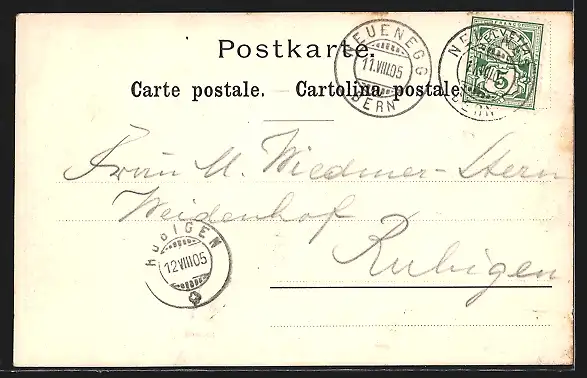 Postkarte.
Carte postale. Cartolina postale.
NEUENEGG
11.VIII.05
BERN
HELVETIA
FRANCO
5
Frau M. Wiedmer-Stern
Weidenhof
Rubigen
RUBIGEN
12.VIII.05